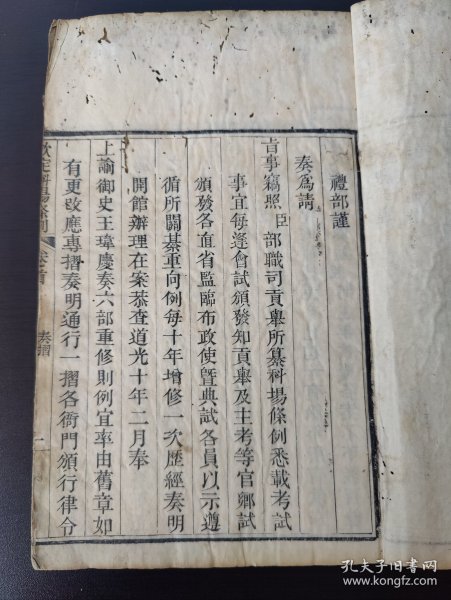 禮部謹
奏爲請
旨事竊照臣部職司貢舉所纂科場條例悉載考試
事宜每逢會試頒發知貢舉及主考等官鄉試
頒發各直省監臨布政使暨典試各員以示遵
循所關綦重向例每十年增修一次歷經奏明
開館辦理在案恭查道光十年二月奉
上諭御史王瑋慶奏六部重修則例宜率由舊章如
有更改應專摺奏明通行一摺各衙門頒行律令
欽定科場條例 卷首 奏摺 一
孔夫子旧书网
www.kongfz.com